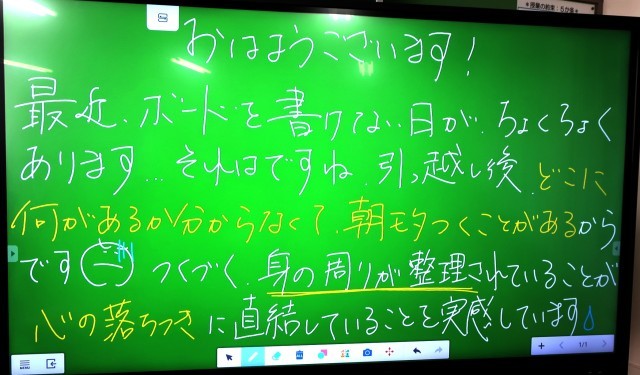 おはようございます!
最近、ボードを書けない日が、ちょくちょく
あります…それはですね、引っ越し後、どこに
何があるか分からなくて、朝モタつくことがあるから
です つくづく、身の周りが整理されていることが
心の落ちつきに直結していることを実感しています
MENU
1/1